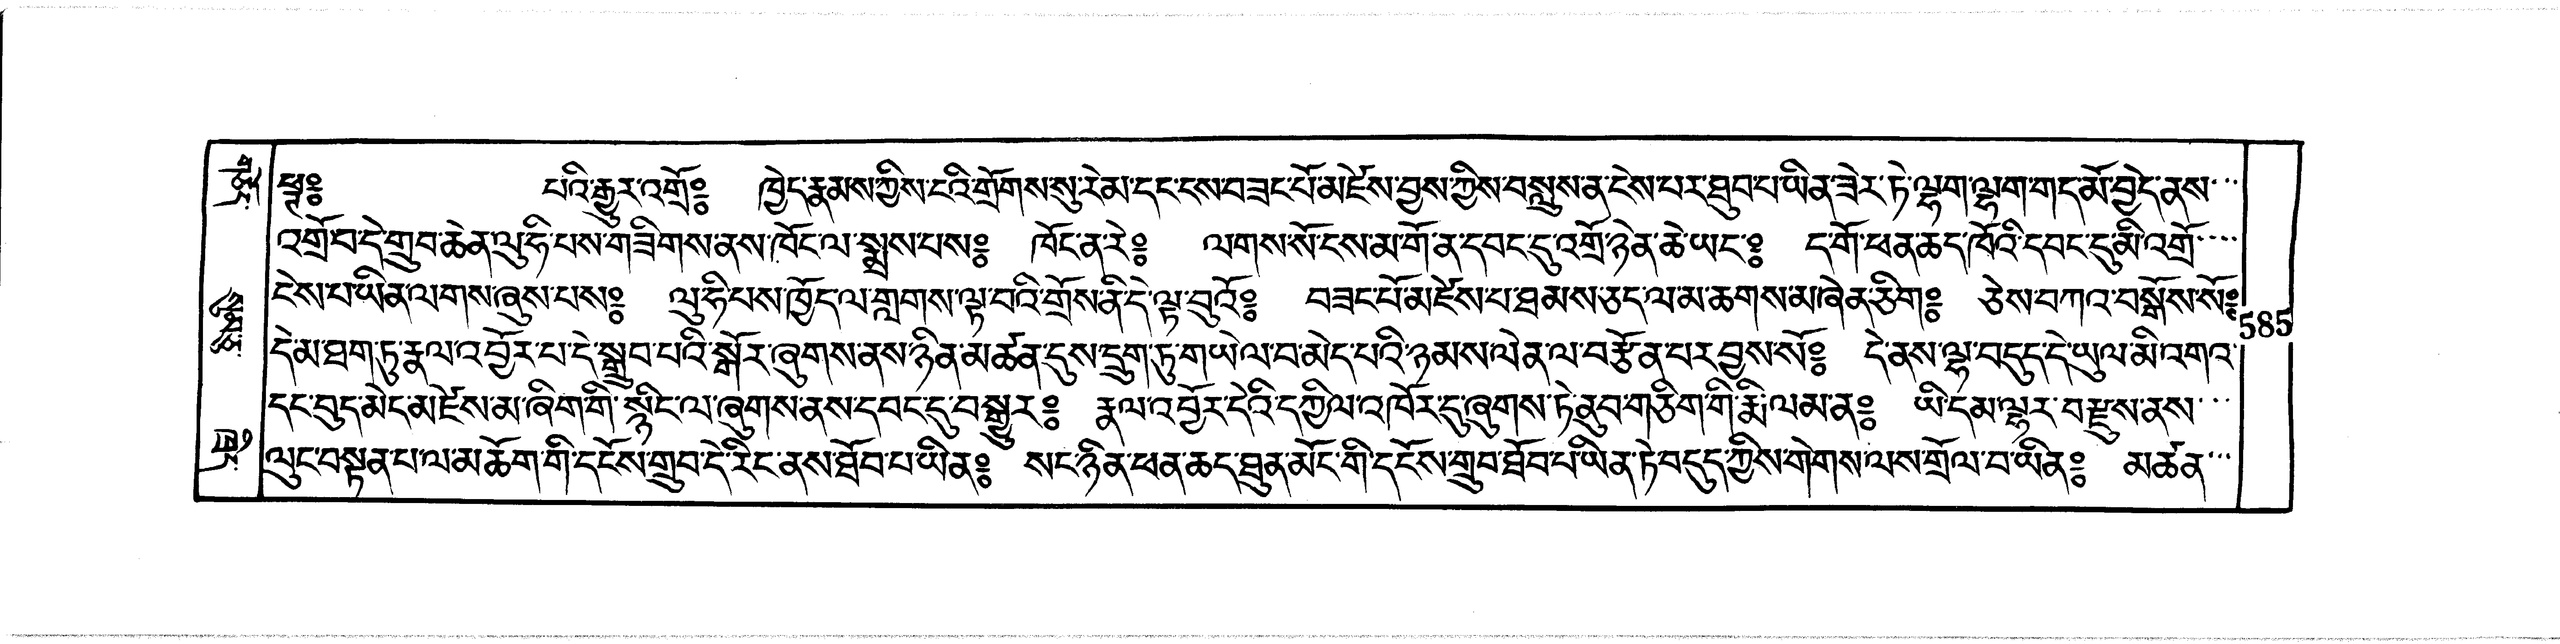 ཕྲ༔ པའི་རྒྱུར་འགྲོ༔ ཁྱེད་རྣམས་ཀྱིས་ངའི་གྲོགས་སུ་རེམ་དང་ངས་བཟང་པོ་མཛེས་བྱས་ཀྱིས་བསླུས་ན་ངེས་པར་ཐུབ་པ་ཡིན་ཟེར་ཏེ་ལྷག་ལྷག་གད་མོ་བྱེད་ནས་་་
འགྲོ་བ་དེ་གྲུབ་ཆེན་ལུ་ཧི་པས་གཟིགས་ནས་ཁོང་ལ་སྨྲས་པས༔ ཁོང་ན་རེ༔ ལགས་སོ་ངས་མ་གོ་ན་དབང་དུ་འགྲོ་ཉེན་ཆེ་ཡང་༔ ད་གོ་ཕན་ཆད་ཁོའི་དབང་དུ་མི་འགྲོ་་་་
ངེས་པ་ཡིན་ལགས་ཞུས་པས༔ ལུ་ཧི་པས་ཁྱོད་ལ་གླགས་ལྟ་བའི་གྲོས་ནི་དེ་ལྟ་བུའོ༔ བཟང་པོ་མཛེས་པ་ཐམས་ཅད་ལ་མ་ཆགས་མ་ཞེན་ཅིག༔ ཅེས་བཀའ་བསྒོས་སོ༔
དེ་མ་ཐག་ཏུ་རྣལ་འབྱོར་པ་དེ་སྒྲུབ་པའི་སྒོར་ཞུགས་ནས་ཉིན་མཚན་དུས་དྲུག་ཏུ་གཡེལ་བ་མེད་པའི་ཉམས་ལེན་ལ་བརྩོན་པར་བྱས་སོ༔ དེ་ནས་ལྷ་བདུད་དེ་ཡུལ་མི་འགའ་
དང་བུད་མེད་མཛེས་མ་ཞིག་གི་སྙིང་ལ་ཞུགས་ནས་དབང་དུ་བསྒྱུར༔ རྣལ་འབྱོར་དེའི་དཀྱིལ་འཁོར་དུ་ཞུགས་ཏེ་ནུབ་གཅིག་གི་རྨི་ལམ་ན༔ ཡི་དམ་ལྷར་བརྫུས་ནས་་་
ལུང་བསྟན་པ་ལ་མཆོག་གི་དངོས་གྲུབ་དེ་རིང་ནས་ཐོབ་པ་ཡིན༔ སང་ཉིན་ཕན་ཆད་ཐུན་མོང་གི་དངོས་གྲུབ་ཐོབ་པ་ཡིན་ཏེ་བདུད་ཀྱིས་གེགས་ལས་གྲོལ་བ་ཡིན༔ མཚན་་་
585